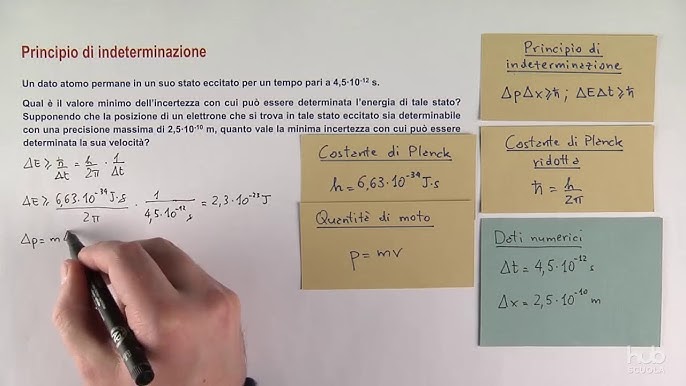 Principio di indeterminazione
Un dato atomo permane in un suo stato eccitato per un tempo pari a 4,5·10⁻¹² s.
Qual è il valore minimo dell'incertezza con cui può essere determinata l'energia di tale stato?
Supponendo che la posizione di un elettrone che si trova in tale stato eccitato sia determinabile
con una precisione massima di 2,5·10⁻¹⁰ m, quanto vale la minima incertezza con cui può essere
determinata la sua velocità?
ΔE ≥ ℏ/Δt = h/2π · 1/Δt
ΔE ≥ 6,63·10⁻³⁴ J·s / 2π · 1 / 4,5·10⁻¹² s = 2,3·10⁻²³ J
Δp = m
Principio di
indeterminazione
ΔpΔx ≥ ℏ ; ΔEΔt ≥ ℏ
Costante di Planck
h = 6,63·10⁻³⁴ J·s
Costante di Planck
ridotta
ℏ = h/2π
Quantità di moto
p = mv
Dati numerici
Δt = 4,5·10⁻¹² s
Δx = 2,5·10⁻¹⁰ m
hub
SCUOLA